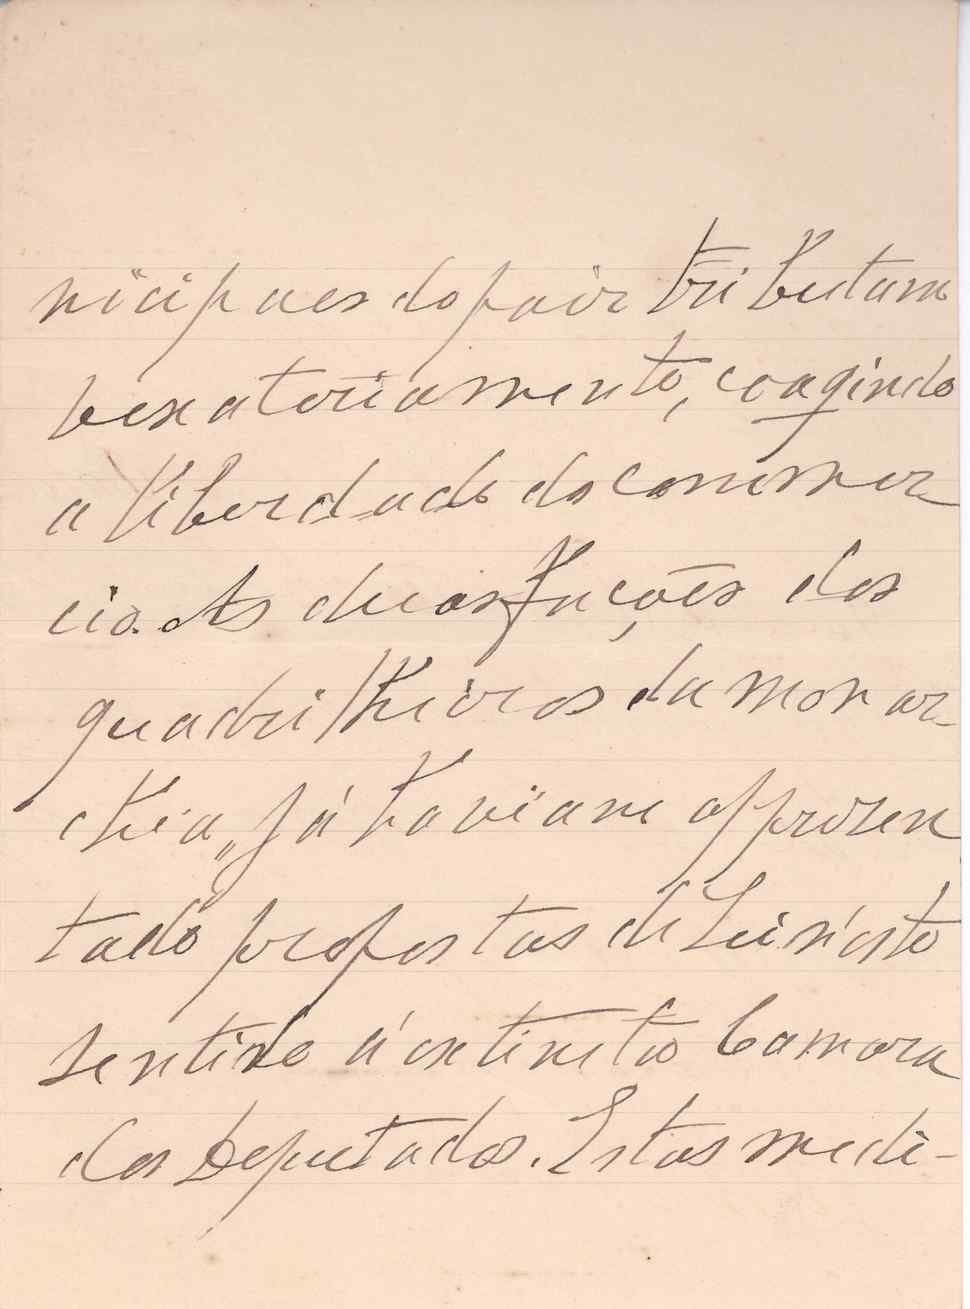 nicipaes do paiz tributam
vexatoriamente, coagindo
a liberdade do commer
cio. As duas facções dos
quadrilheiros da monar
chia, já haviam apprezen
tado propostas de Lei n'este
sentido á extincta Camara
dos Deputados. Estas medi-